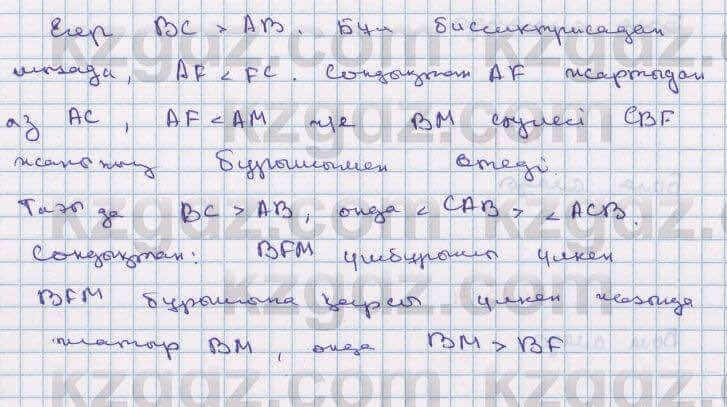 Егер BC > AB. Бұл биссектрисадан
шығады, AF < FC. Сондықтан AF жартыдан
аз AC, AF < AM және BM сәулесі CBF
жанының бұрышымен өтеді.
Тағы да BC > AB, онда < CAB > < ACB.
Сондықтан: BFM үшбұрышы үлкен
BFM бұрышына қарсы үлкен жағында
жатыр BM, онда BM > BF
kzgdz.com